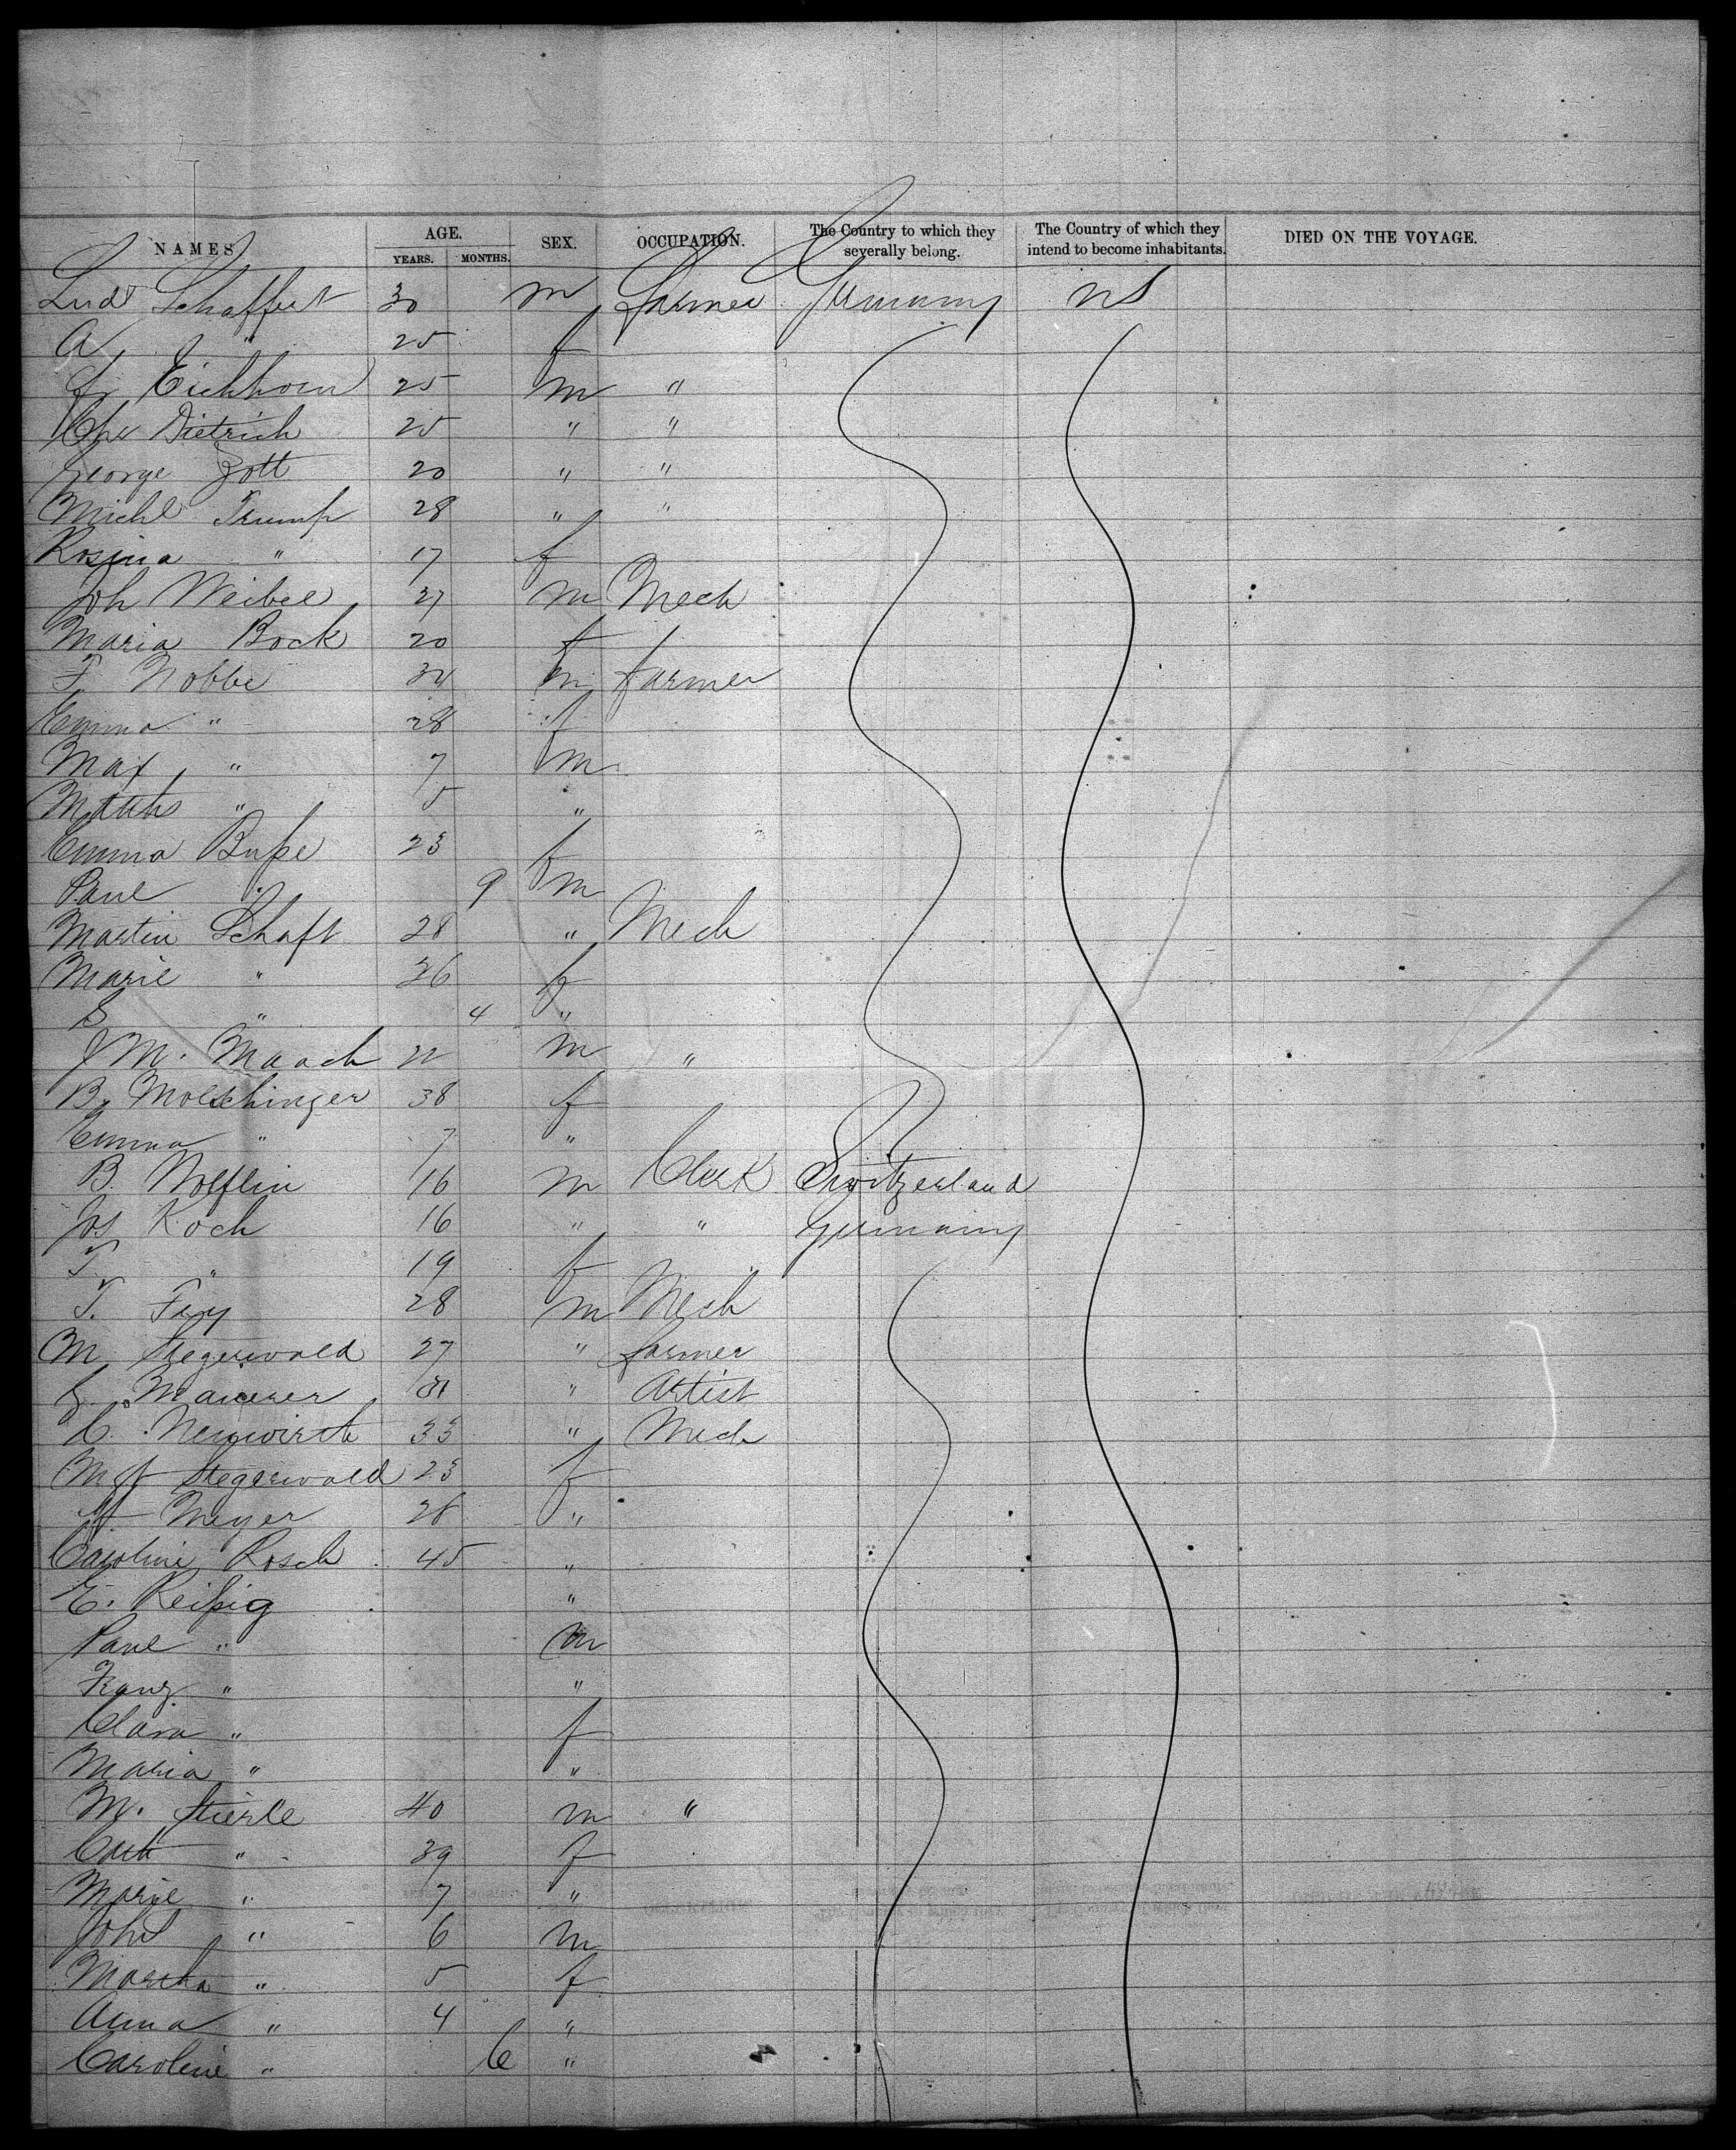 NAMES AGE. YEARS. MONTHS. SEX. OCCUPATION. The Country to which they severally belong. The Country of which they intend to become inhabitants. DIED ON THE VOYAGE.
Schaffert 30 m farmer Germany US
A " 25 f
Fr Eichhorn 25 m "
Chr Dietrich 25 " "
George Zott 20 " "
Michl Trump 28 " "
Rosina " 17 f
Joh Weibel 27 m Mech
Maria Bock 20 f
F. Nobbe 34 m farmer
Emma " 28 f
Max " 7 m
" 5 "
Emma Buße 23 f
Paul " 9 m
Martin Schaft 28 " Mech
Marie " 26 f
S " 4 "
J M. Maach 22 m "
B. Molschinger 38 f
Emma " 7 "
B. Wolflin 16 m Clerk Switzerland
Jos Koch 16 " " Germany
T " 19 f
T. Fey 28 m Mech
M Stegerwald 27 " farmer
Maurer 31 " Artist
C. Neuwirth 33 " Mech
Mgt Stegerwald 23 f
Meyer 28 "
Caroline Rosch 45 "
E. Reißig "
Paul " m
Franz " "
Clara " f
Maria " "
M. Stierle 40 m "
Cath " 39 f
Marie " 7 "
Johs " 6 m
Martha " 5 f
Anna " 4 "
Caroline " 6 "